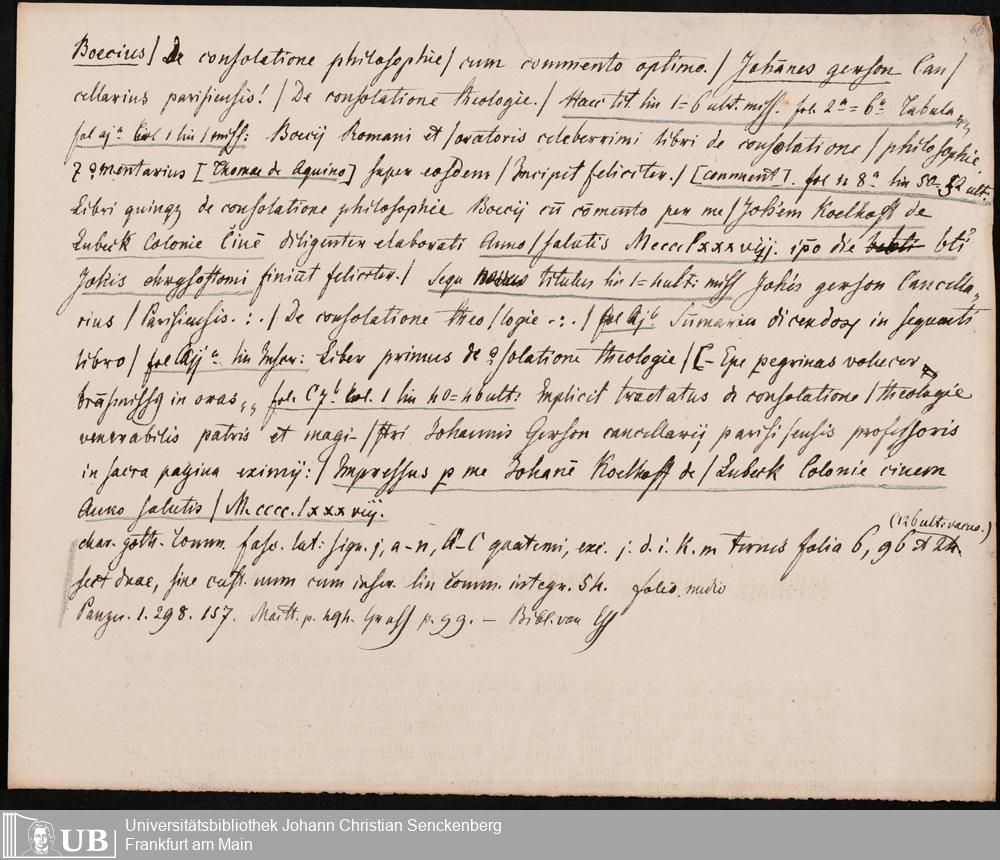 Boecius / De consolatione philosophie / cum commento optimo. / Johānes gerson Can /
cellarius parisiensis! / De consolatione theologie. / Haec tit. lin 1=6 ult. miss. fol. 2ᵃ = 6ᵃ Tabula „
fol ajᵃ Col 1 lin 1 miss: Boecij Romani et / oratoris celeberrimi libri de consolatione / philosophie
[Thomae de Aquino] super eosdem / Incipit feliciter. / [comment]. fol n 8ᵃ lin 50-52 ult.
Libri quinqz de consolatione philosophie Boecij cū cōmento per me / Johēm Koelhoff de
Lubeck Colonie Ciuē diligenter elaborati Anno / salutis Mcccclxxxviij. ipō die bti
Johis chrysostomi finiūt feliciter. / Sequ titulus lin 1=4 ult: miss Johēs gerson Cancella„
rius / Parisiensis. : . / De consolatione theo / logie . : . / fol Ajᵇ Sūmaria dicendoꝝ in sequenti
libro / fol Aijᵃ lin Inscr: Liber primus de solatione theologie / [- Epe pegrinas volucer
in oras „ fol. C 7ᵇ Col. 1 lin 40=46 ult: Explicit tractatus de consolatione / theologie
venerabilis patris et magi- / stri Johannis Gerson cancellarij parisi / ensis professoris
in sacra pagina eximij: / Impressus p me Johanē Koelhoff de / Lubeck Colonie ciuem
Anno salutis / M.cccc.lxxxviij.
(12 6 ult. vacuo.)
char. goth. Comm. fasc. lat: sign. j, a-n, A-C quaterni, exc. j. d. i. K. m ternis folia 6, 96 et 24
sect duae, sine cust. num cum inscr. lin Comm. integr. 54. folio. medio
Panzer. 1. 298. 157. Maitt. p. 494. Grass p. 99. — Bibl. van Ess
Universitätsbibliothek Johann Christian Senckenberg
UB Frankfurt am Main